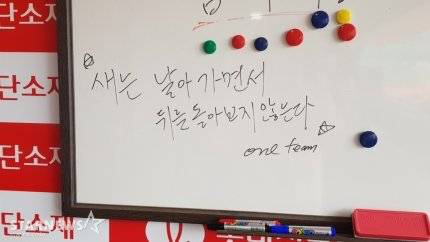 단소재
☆ 새는 날아가면서
뒤를 돌아보지 않는다 ☆
one team
단소재
단소재
STARNEWS